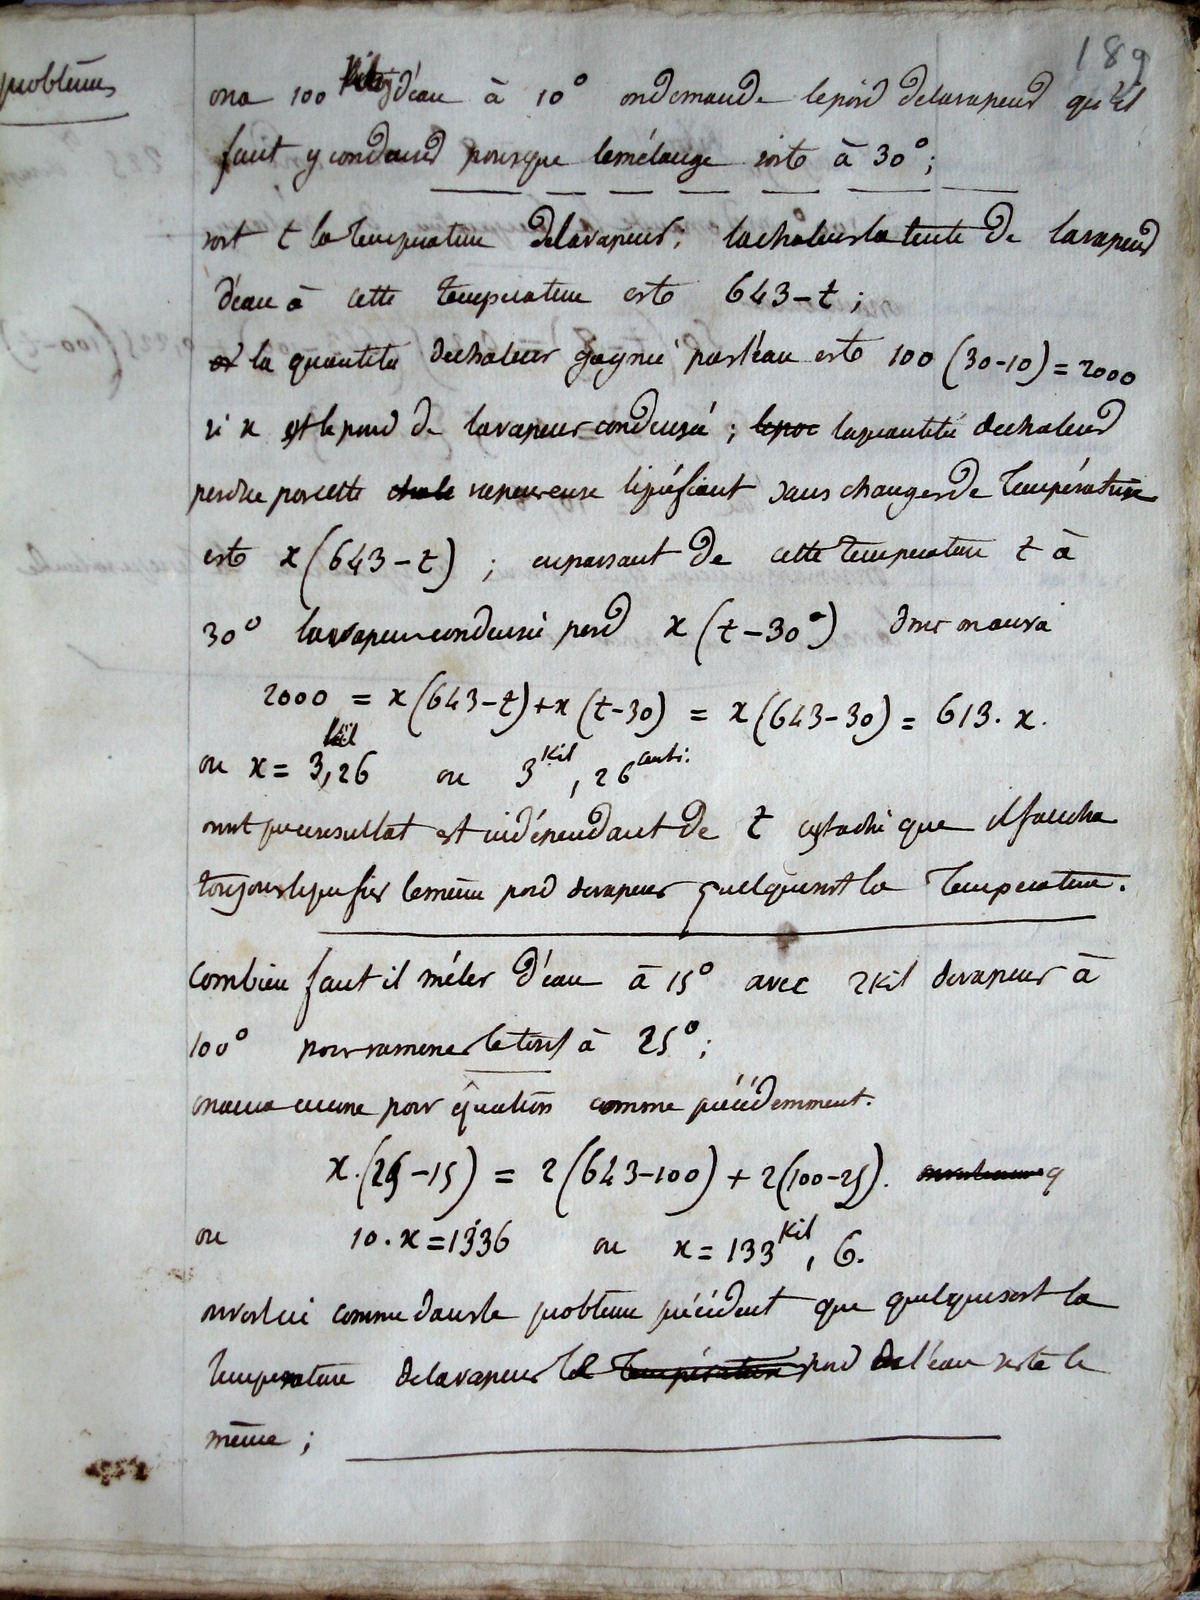 189
problèmes
on a 100 kilog d'eau à 10° on demande le poid de la vapeur qu'il
faut y condenser pour que le mélange soit à 30°;
soit t la température de la vapeur; la chaleur latente de la vapeur
d'eau à cette température est 643-t;
la quantité de chaleur gagnée par l'eau est 100 (30-10) = 2000
si x est le poid de la vapeur condensée; la quantité de chaleur
perdue par cette vapeur en se liquéfiant sans changer de température
est x(643-t); en passant de cette température t à
30° la vapeur condensée perd x(t-30°) donc on aura
2000 = x(643-t)+x(t-30) = x(643-30) = 613. x.
ou x = 3,26 kil ou 3 kil, 26 centi.
on voit que ce résultat est indépendant de t c'est à dire que il faudra
toujours liquéfier le même poid de vapeur quelque soit la température.
Combien faut il mêler d'eau à 15° avec 2 kil de vapeur à
100° pour ramener le tout à 25°;
on aura encore pour équation comme précédemment.
x.(25-15) = 2(643-100) + 2(100-25).
ou 10. x = 1336 ou x = 133 kil, 6.
on voit ici comme dans le problème précédent que quelque soit la
température de la vapeur le poid de l'eau reste le
même;